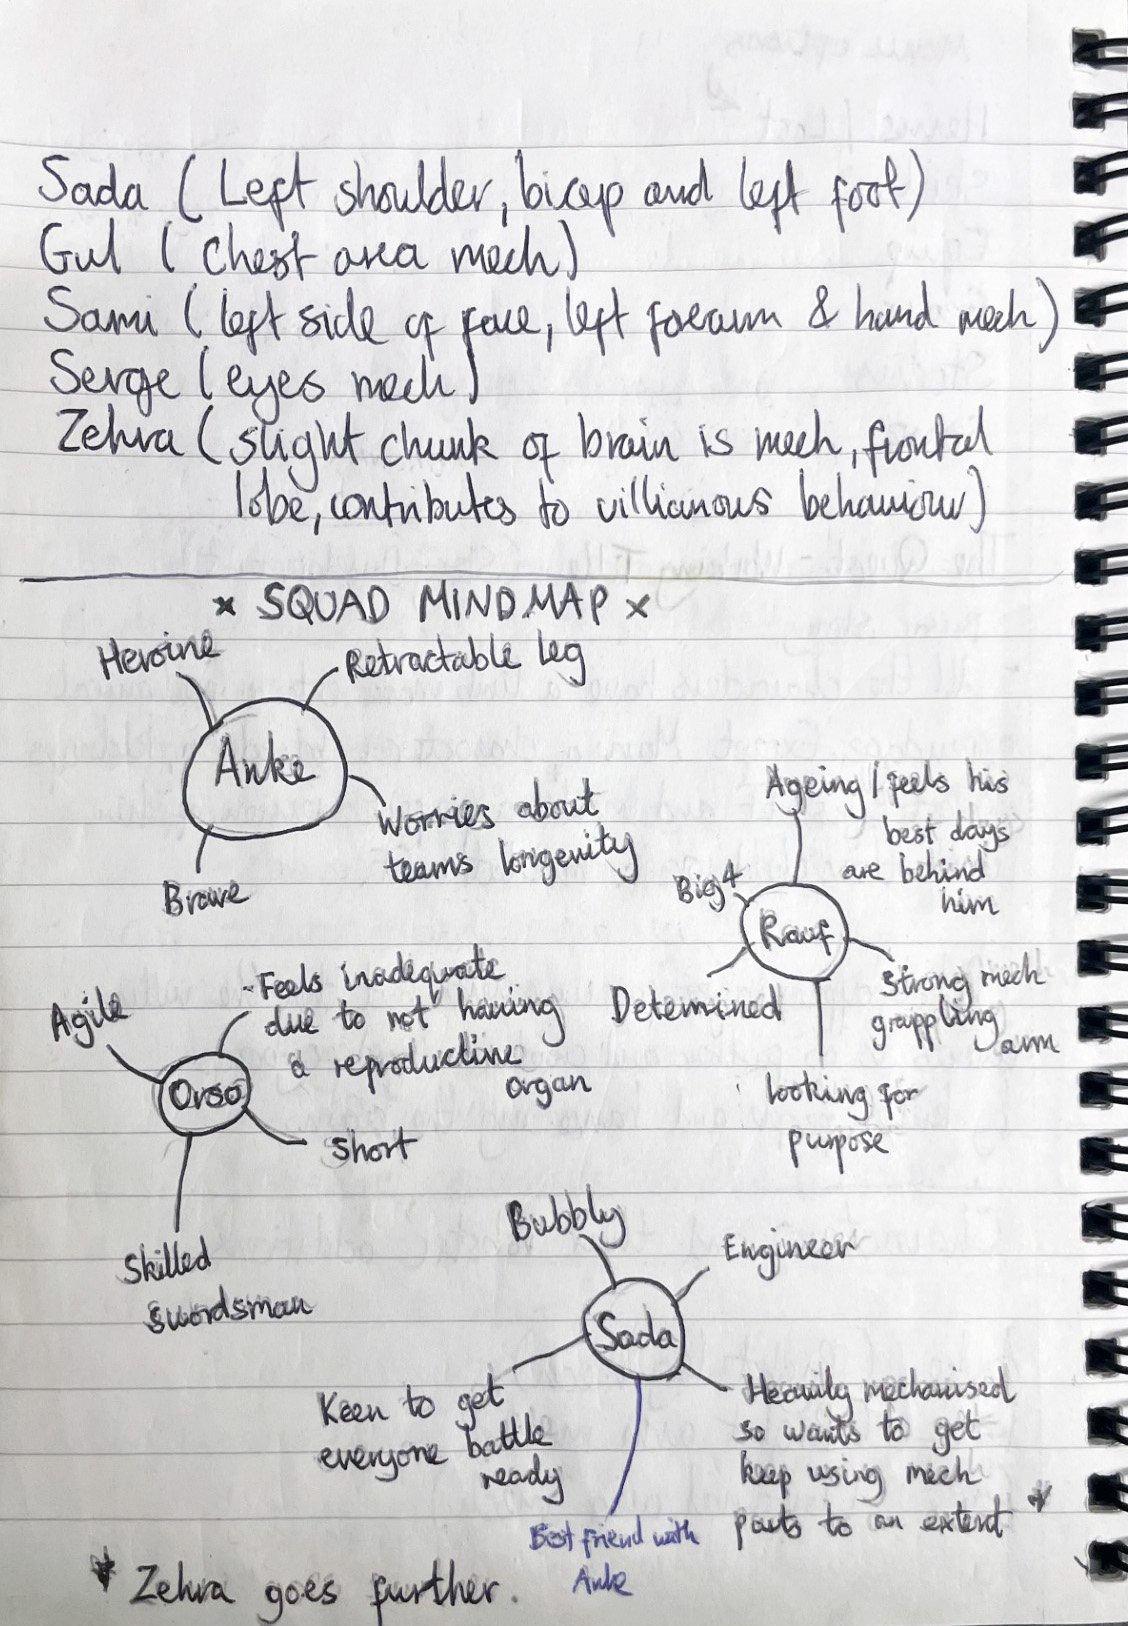 Sada (Left shoulder, bicep and left foot)
Gul (Chest area mech)
Sami (left side of face, left forearm & hand mech)
Serge (eyes mech)
Zehra (slight chunk of brain is mech, frontal
lobe, contributes to villianous behaviour)
* SQUAD MINDMAP *
Heroine
Retractable leg
Anke
Worries about
teams longevity
Brave
Ageing / feels his
best days
are behind
him
Big
Rauf
Strong mech
grappling
arm
Detemined
looking for
purpose
Agile
Feels inadequate
due to not having
a reproductive
organ
Orso
Short
Skilled
swordsman
Bubbly
Engineer
Sada
Keen to get
everyone battle
ready
Heavily mechanised
so wants to get
keep using mech
parts to an extent *
Best friend with
Anke
* Zehra goes further.